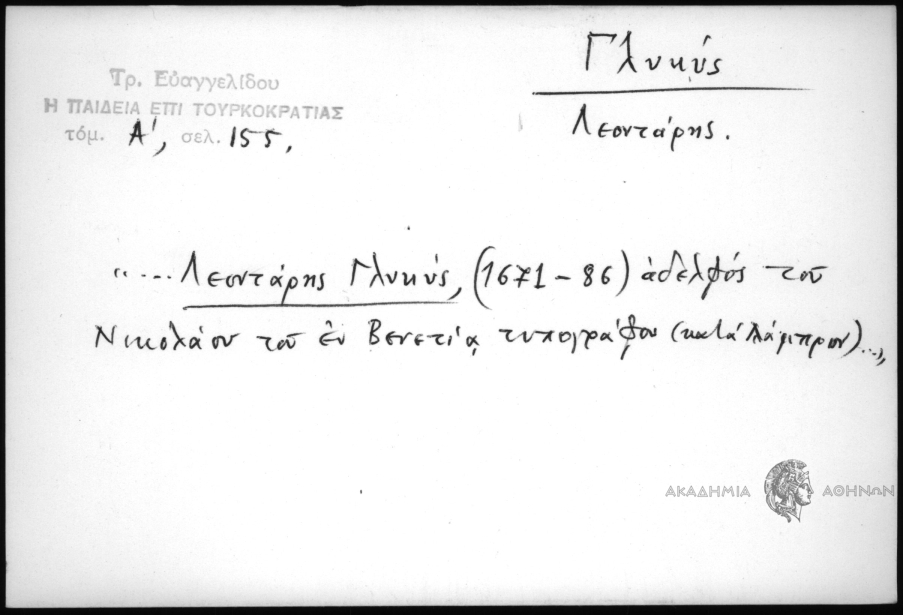 Τρ. Εὐαγγελίδου
Η ΠΑΙΔΕΙΑ ΕΠΙ ΤΟΥΡΚΟΚΡΑΤΙΑΣ
τόμ. Α', σελ. 155,
Γλυκύς
Λεοντάρης.
"....Λεοντάρης Γλυκύς, (1671-86) ἀδελφός τοῦ
Νικολάου τοῦ ἐν Βενετίᾳ τυπογράφου (κατά Λάμπρον)...,,
ΑΚΑΔΗΜΙΑ ΑΘΗΝΩΝ